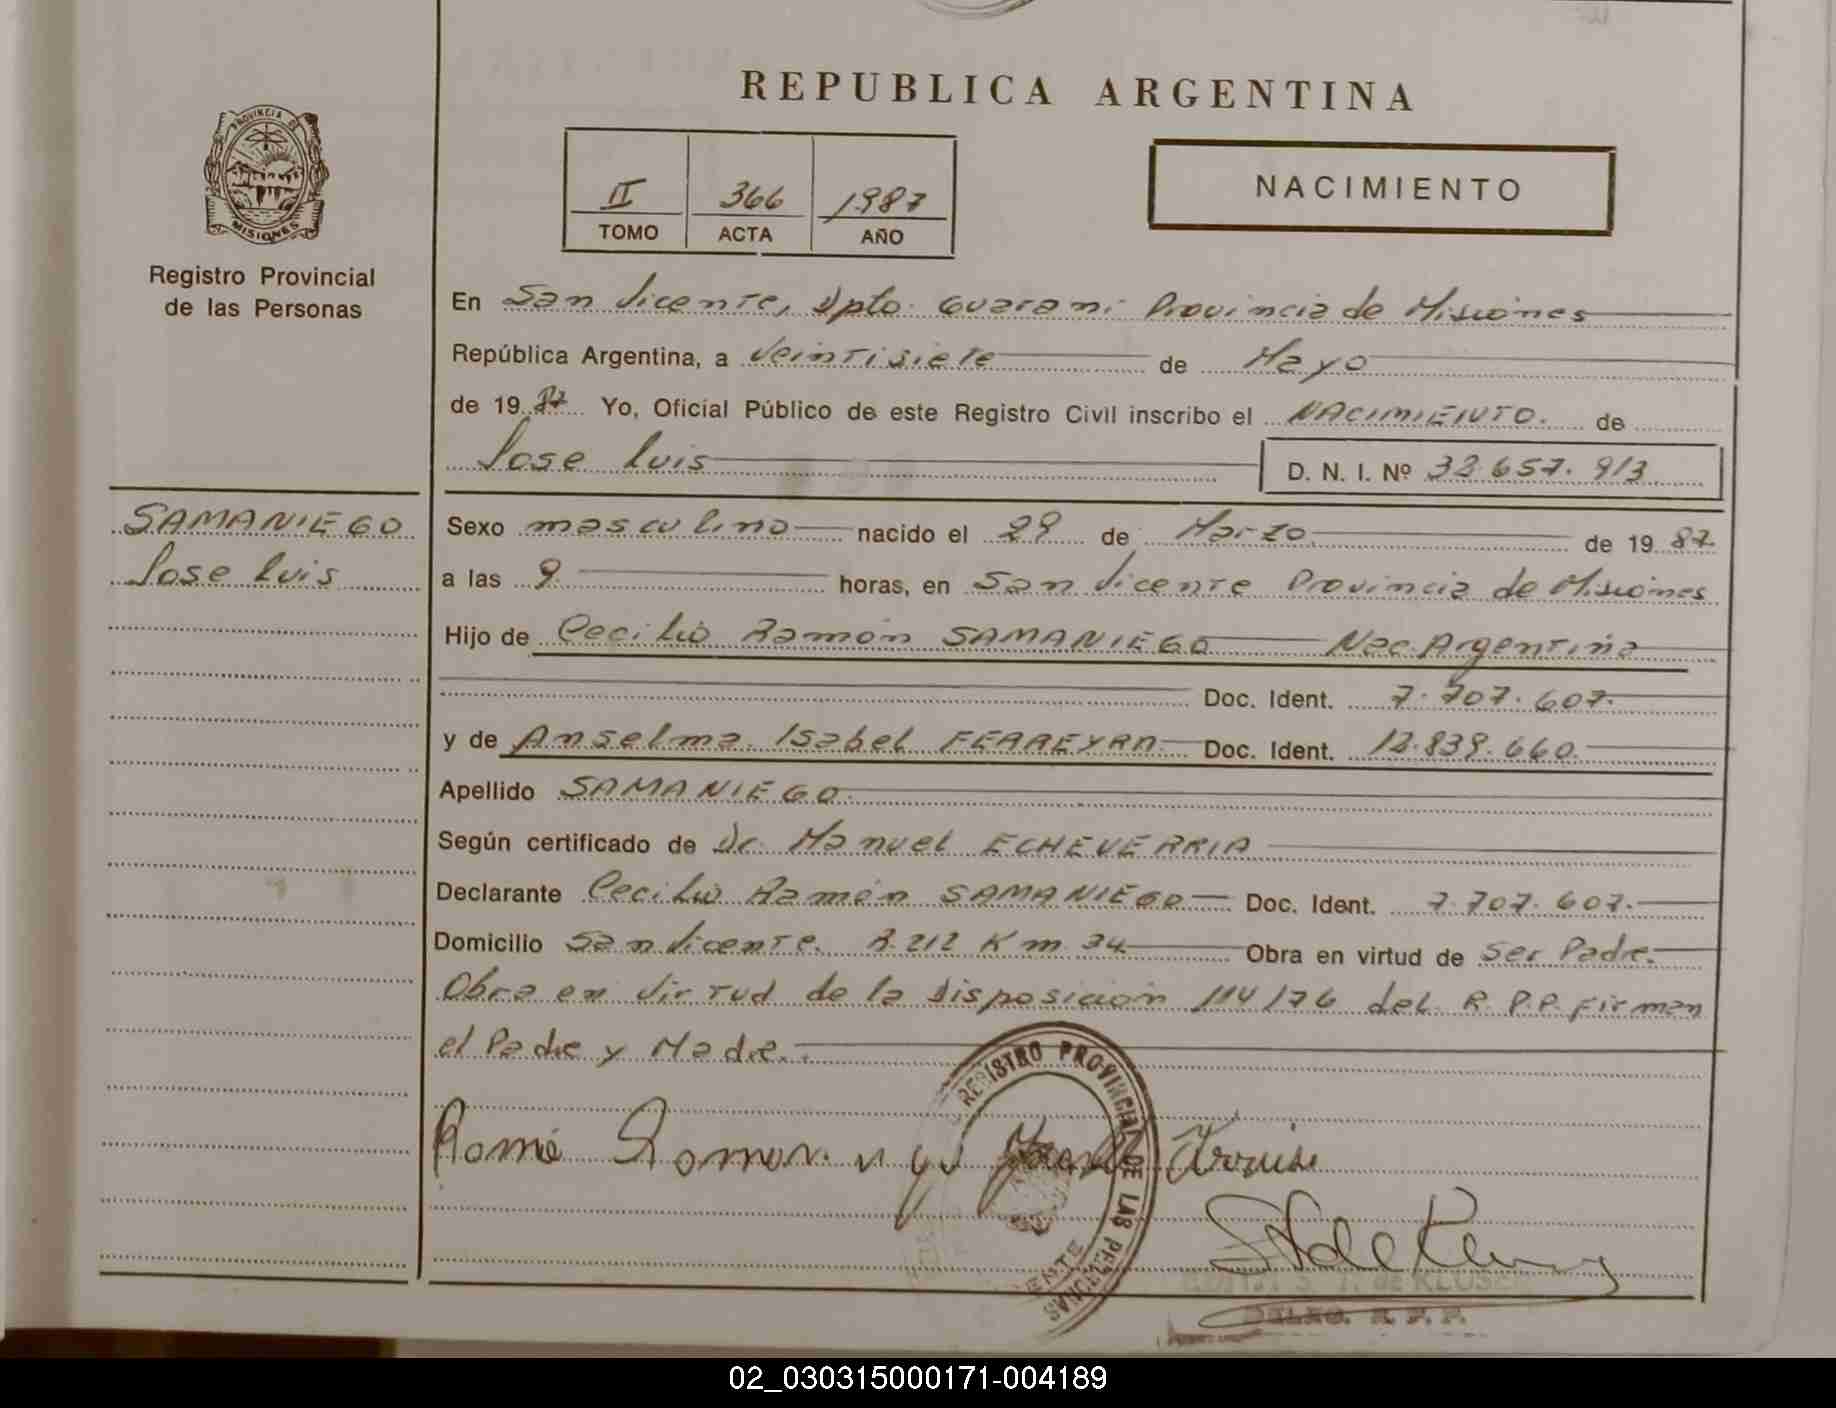 REPUBLICA ARGENTINA
PROVINCIA DE
MISIONES
Registro Provincial
de las Personas
II 366 1987
TOMO ACTA AÑO
NACIMIENTO
En San Vicente, Dpto. Guarani Provincia de Misiones
República Argentina, a veintisiete de Mayo
de 19 87 Yo, Oficial Público de este Registro Civil inscribo el NACIMIENTO. de
Jose Luis D. N. I. Nº 32.657.913
SAMANIEGO
Jose Luis
Sexo masculino nacido el 29 de Marzo de 19 87.
a las 9 horas, en San Vicente Provincia de Misiones
Hijo de Cecilio Ramón SAMANIEGO Nac. Argentina
Doc. Ident. 7.707.607.
y de Anselma Isabel FERREYRA Doc. Ident. 12.839.660.
Apellido SAMANIEGO.
Según certificado de Dr. Manuel ECHEVERRIA
Declarante Cecilio Ramón SAMANIEGO Doc. Ident. 7.707.607.
Domicilio San Vicente. R.212 Km 34 Obra en virtud de ser Padre.
Obra en virtud de la disposición 114/76 del R.P.P. firman
el Padre y Madre.
REGISTRO PROVINCIAL DE LAS PERSONAS
02_030315000171-004189